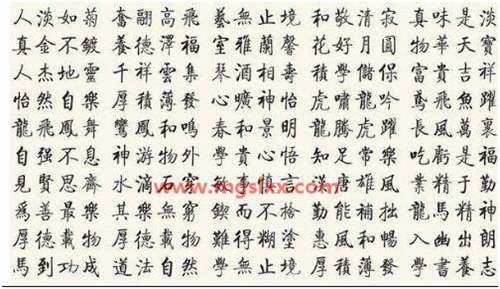 人淡如菊 奮翮高飛 藝無止境 和敬清寂 真味是淡
真金不鍍 養德澤福 室雅蘭馨 花好月圓 物華天寶
人杰地靈 千祥雲集 琴酒相壽 學儲保 富貴吉祥
怡然自樂 厚積薄發 心曠神怡 虎嘯龍吟 鳶飛魚躍
龍飛鳳舞 鸞鳳和鳴 春和景明 龍騰虎躍 長風萬裏
自强不息 神游物外 學貴心悟 知足常樂 吃虧是福
見賢思齊 水滴石穿 事慎言 漢唐雄風 業精于勤
爲善最樂 其樂無窮 鍥而不捨 勤能補拙 龍馬精神
厚德載物 厚德載物 難得糊塗 惠風和暢 入幽出朗
馬到功成 道法自然 學無止境 厚積薄發 學書養志
www.mgslxx.com